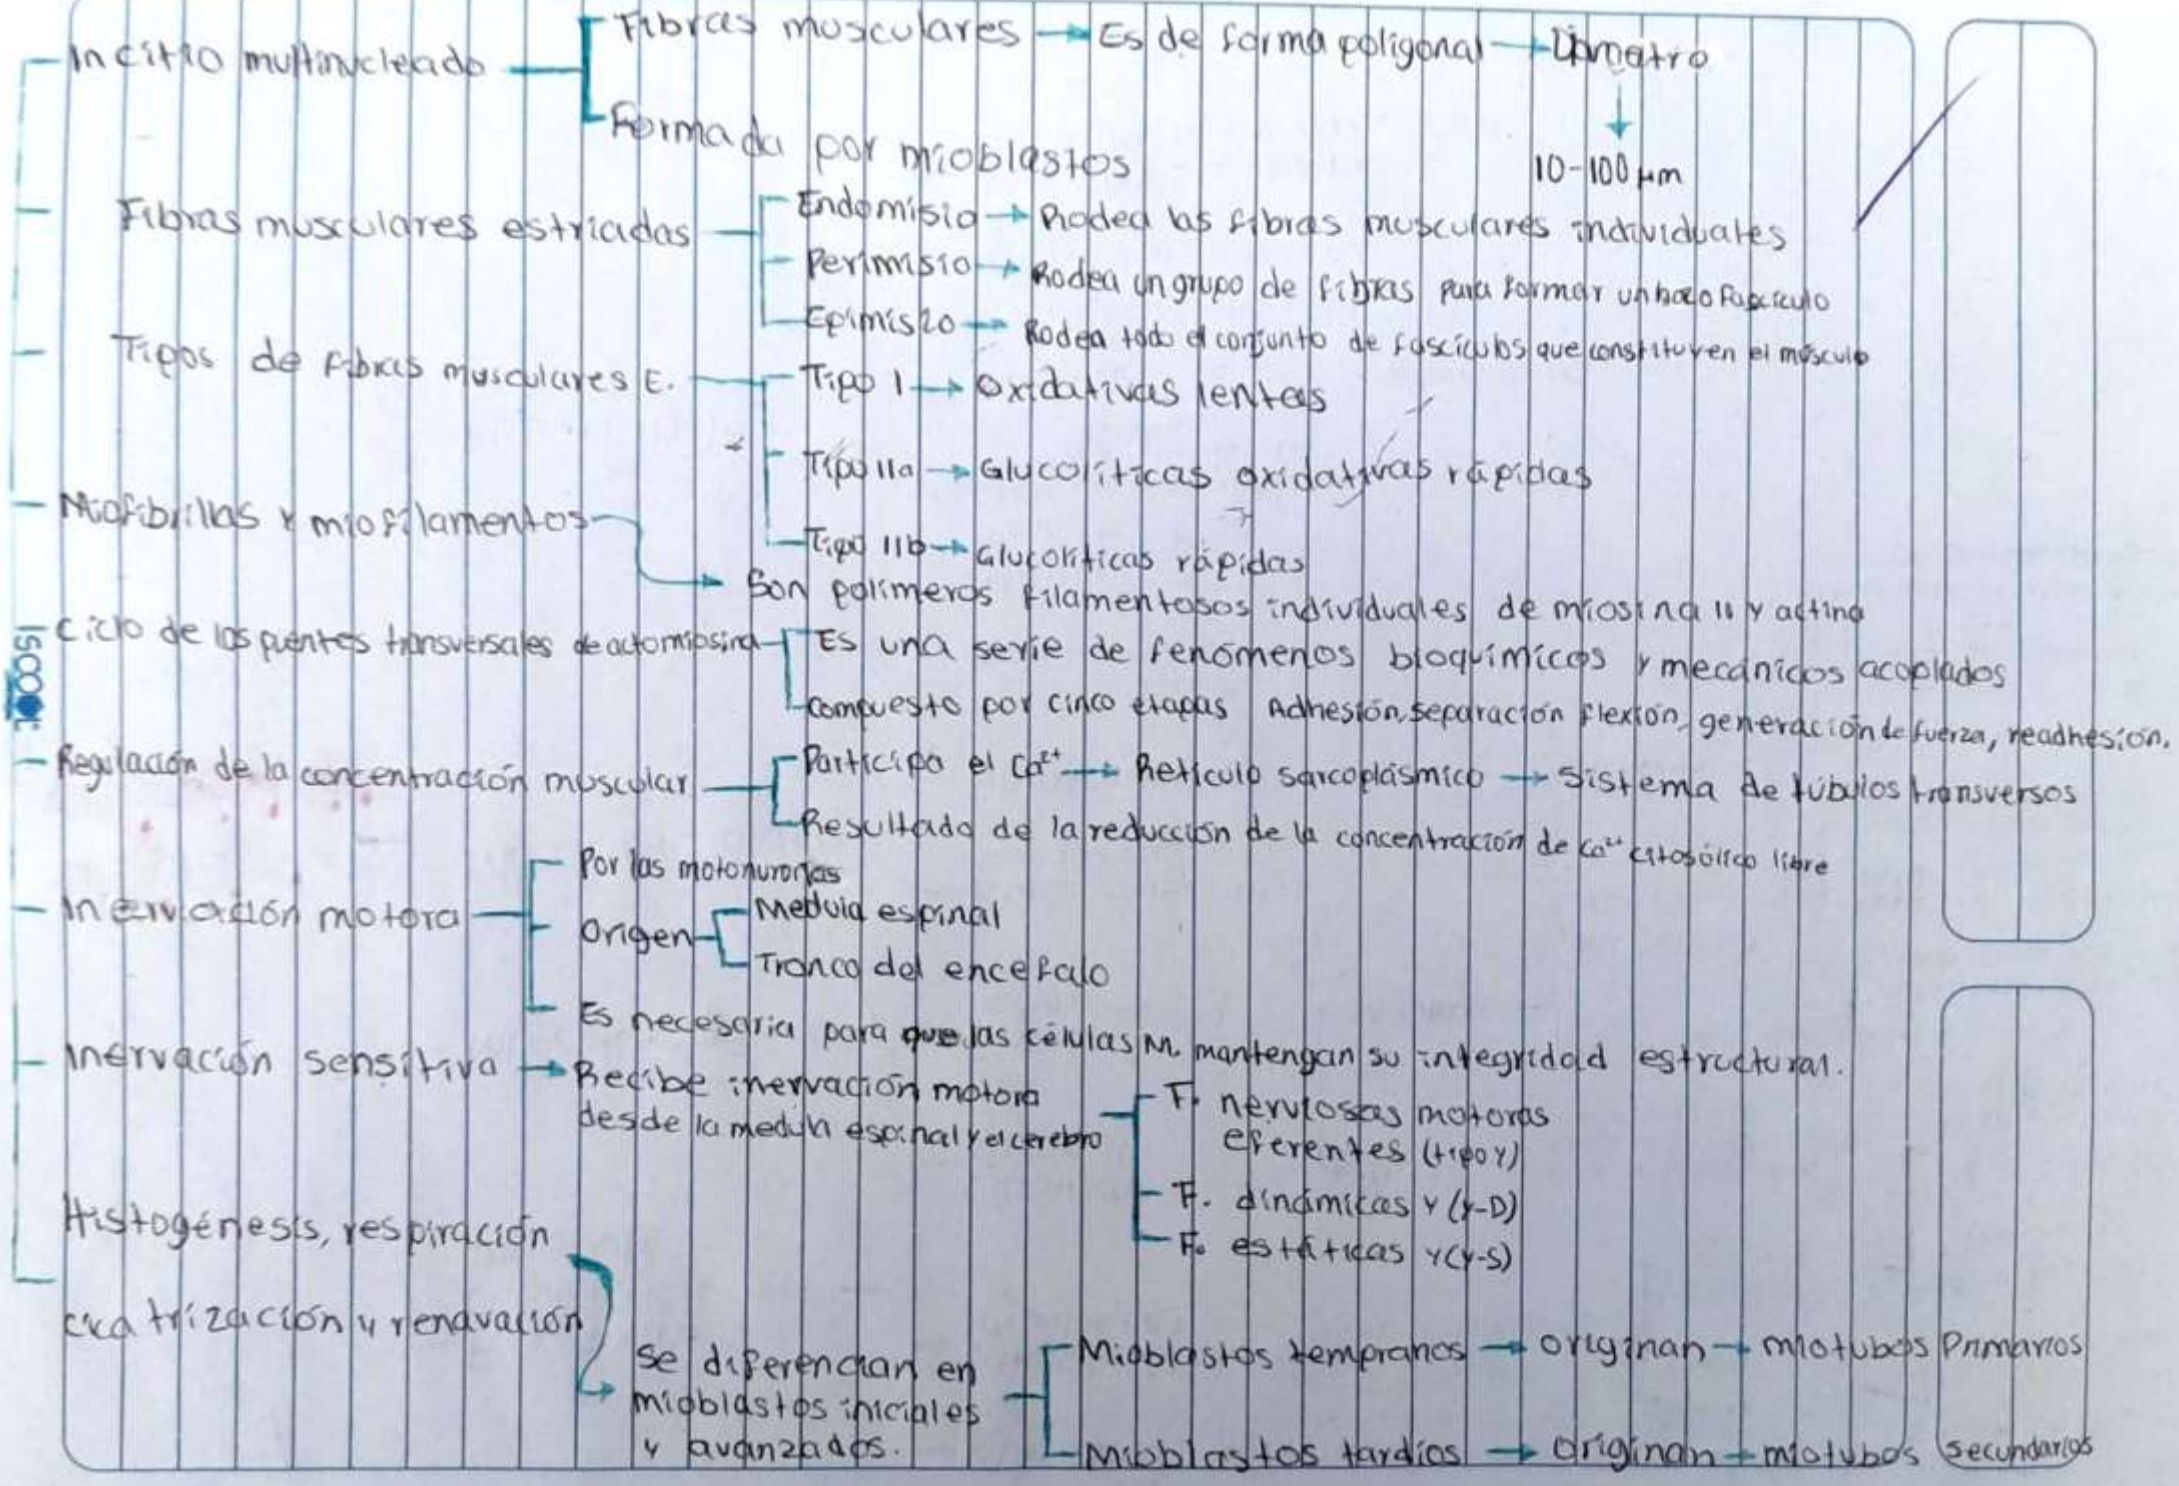 Incitio multinucleado
Fibras musculares → Es de forma poligonal → Diametro
10-100 μm
Formada por mioblastos
Fibras musculares estriadas
Endomisio → Rodea las fibras musculares individuales
Perimisio → Rodea un grupo de fibras para formar un haz o Fascículo
Epimisio → Rodea todo el conjunto de fascículos que constituyen el músculo
Tipos de fibras musculares E.
Tipo I → Oxidativas lentas
Tipo IIa → Glucolíticas oxidativas rápidas
Tipo IIb → Glucolíticas rápidas
Miofibrillas y miofilamentos
Son polímeros filamentosos individuales de miosina II y actina
Ciclo de los puentes transversales de actomiosina
Es una serie de fenómenos bioquímicos y mecánicos acoplados
compuesto por cinco etapas Adhesión, separación flexión, generación de fuerza, readhesión.
Regulación de la concentración muscular
Participa el Ca²⁺ → Retículo sarcoplásmico → Sistema de túbulos transversos
Resultado de la reducción de la concentración de Ca²⁺ citosólico libre
Inervación motora
Por las motonuronas
Origen
Medula espinal
Tronco del encefalo
Es necesaria para que las células M. mantengan su integridad estructural.
Inervación sensitiva → Recibe inervación motora
desde la medula espinal y el cerebro
F. nerviosas motoras
eferentes (tipo γ)
F. dinámicas γ (γ-D)
F. estáticas γ (γ-S)
Histogénesis, respiración
cicatrización y renovación
Se diferencian en
mioblastos iniciales
y avanzados.
Mioblastos tempranos → originan → miotubos Primarios
Mioblastos tardíos → originan → miotubos secundarios